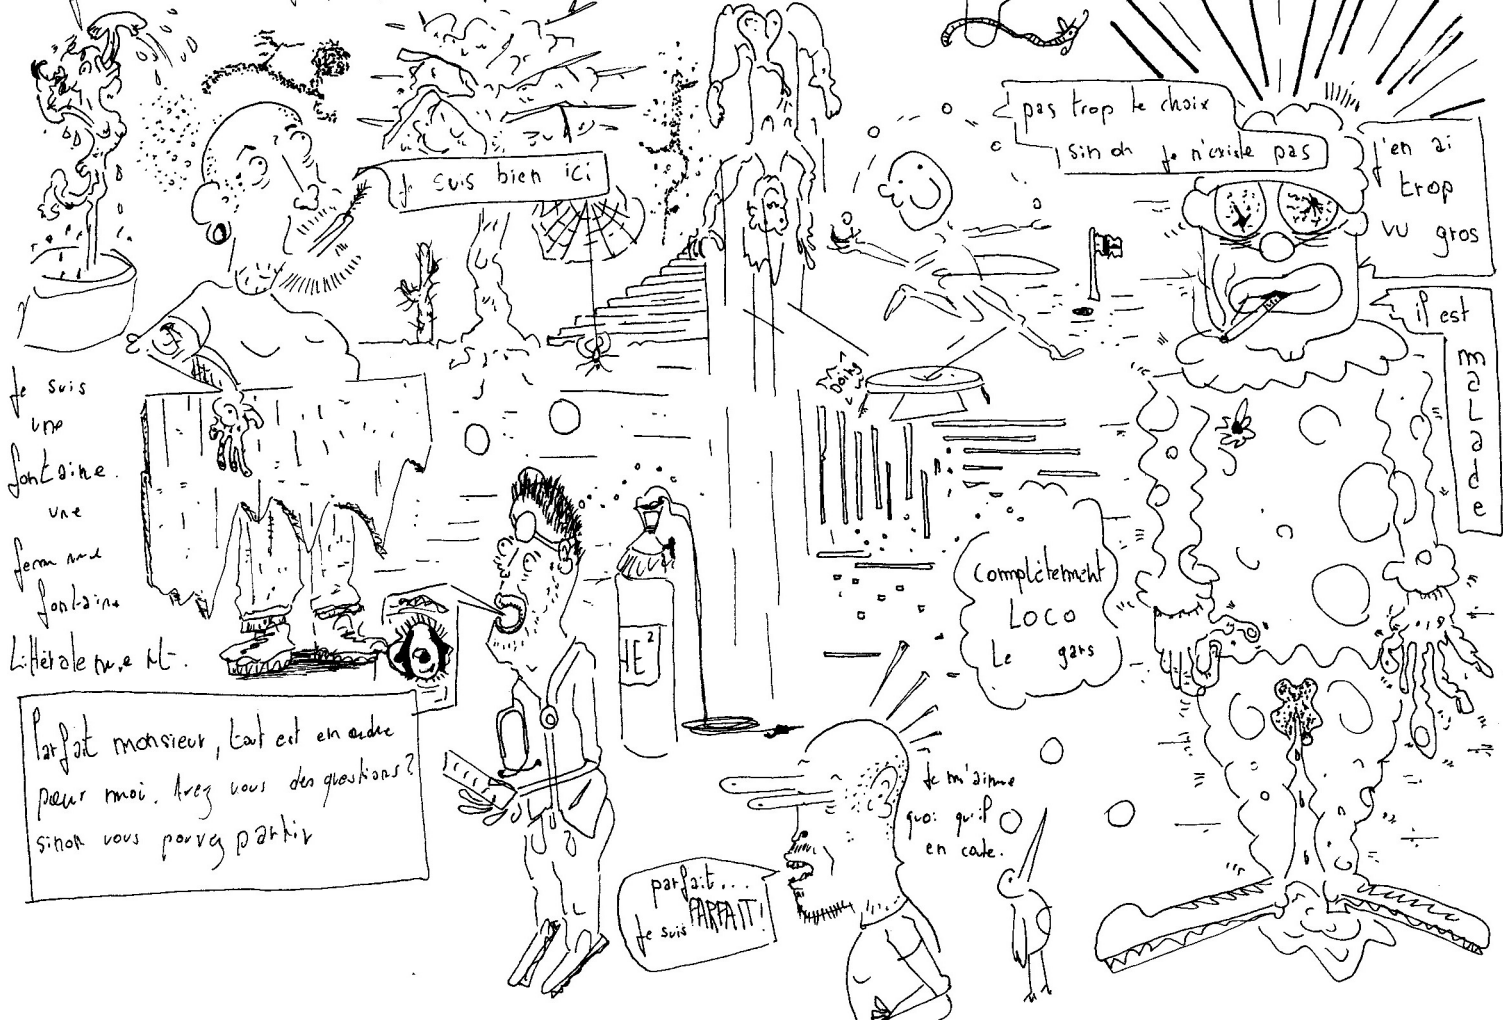 je suis bien ici
pas trop le choix
sinon je n'existe pas
j'en ai
trop
vu gros
il est
malade
Doing
je suis
une
fontaine.
une
femme
fontaine
Littéralement.
Complètement
LOCO
Le gars
HE²
Parfait monsieur, tout est en ordre
pour moi. Avez vous des questions?
sinon vous pouvez partir
je m'aime
quoi qu'il
en coute.
parfait...
je suis PARFAIT!